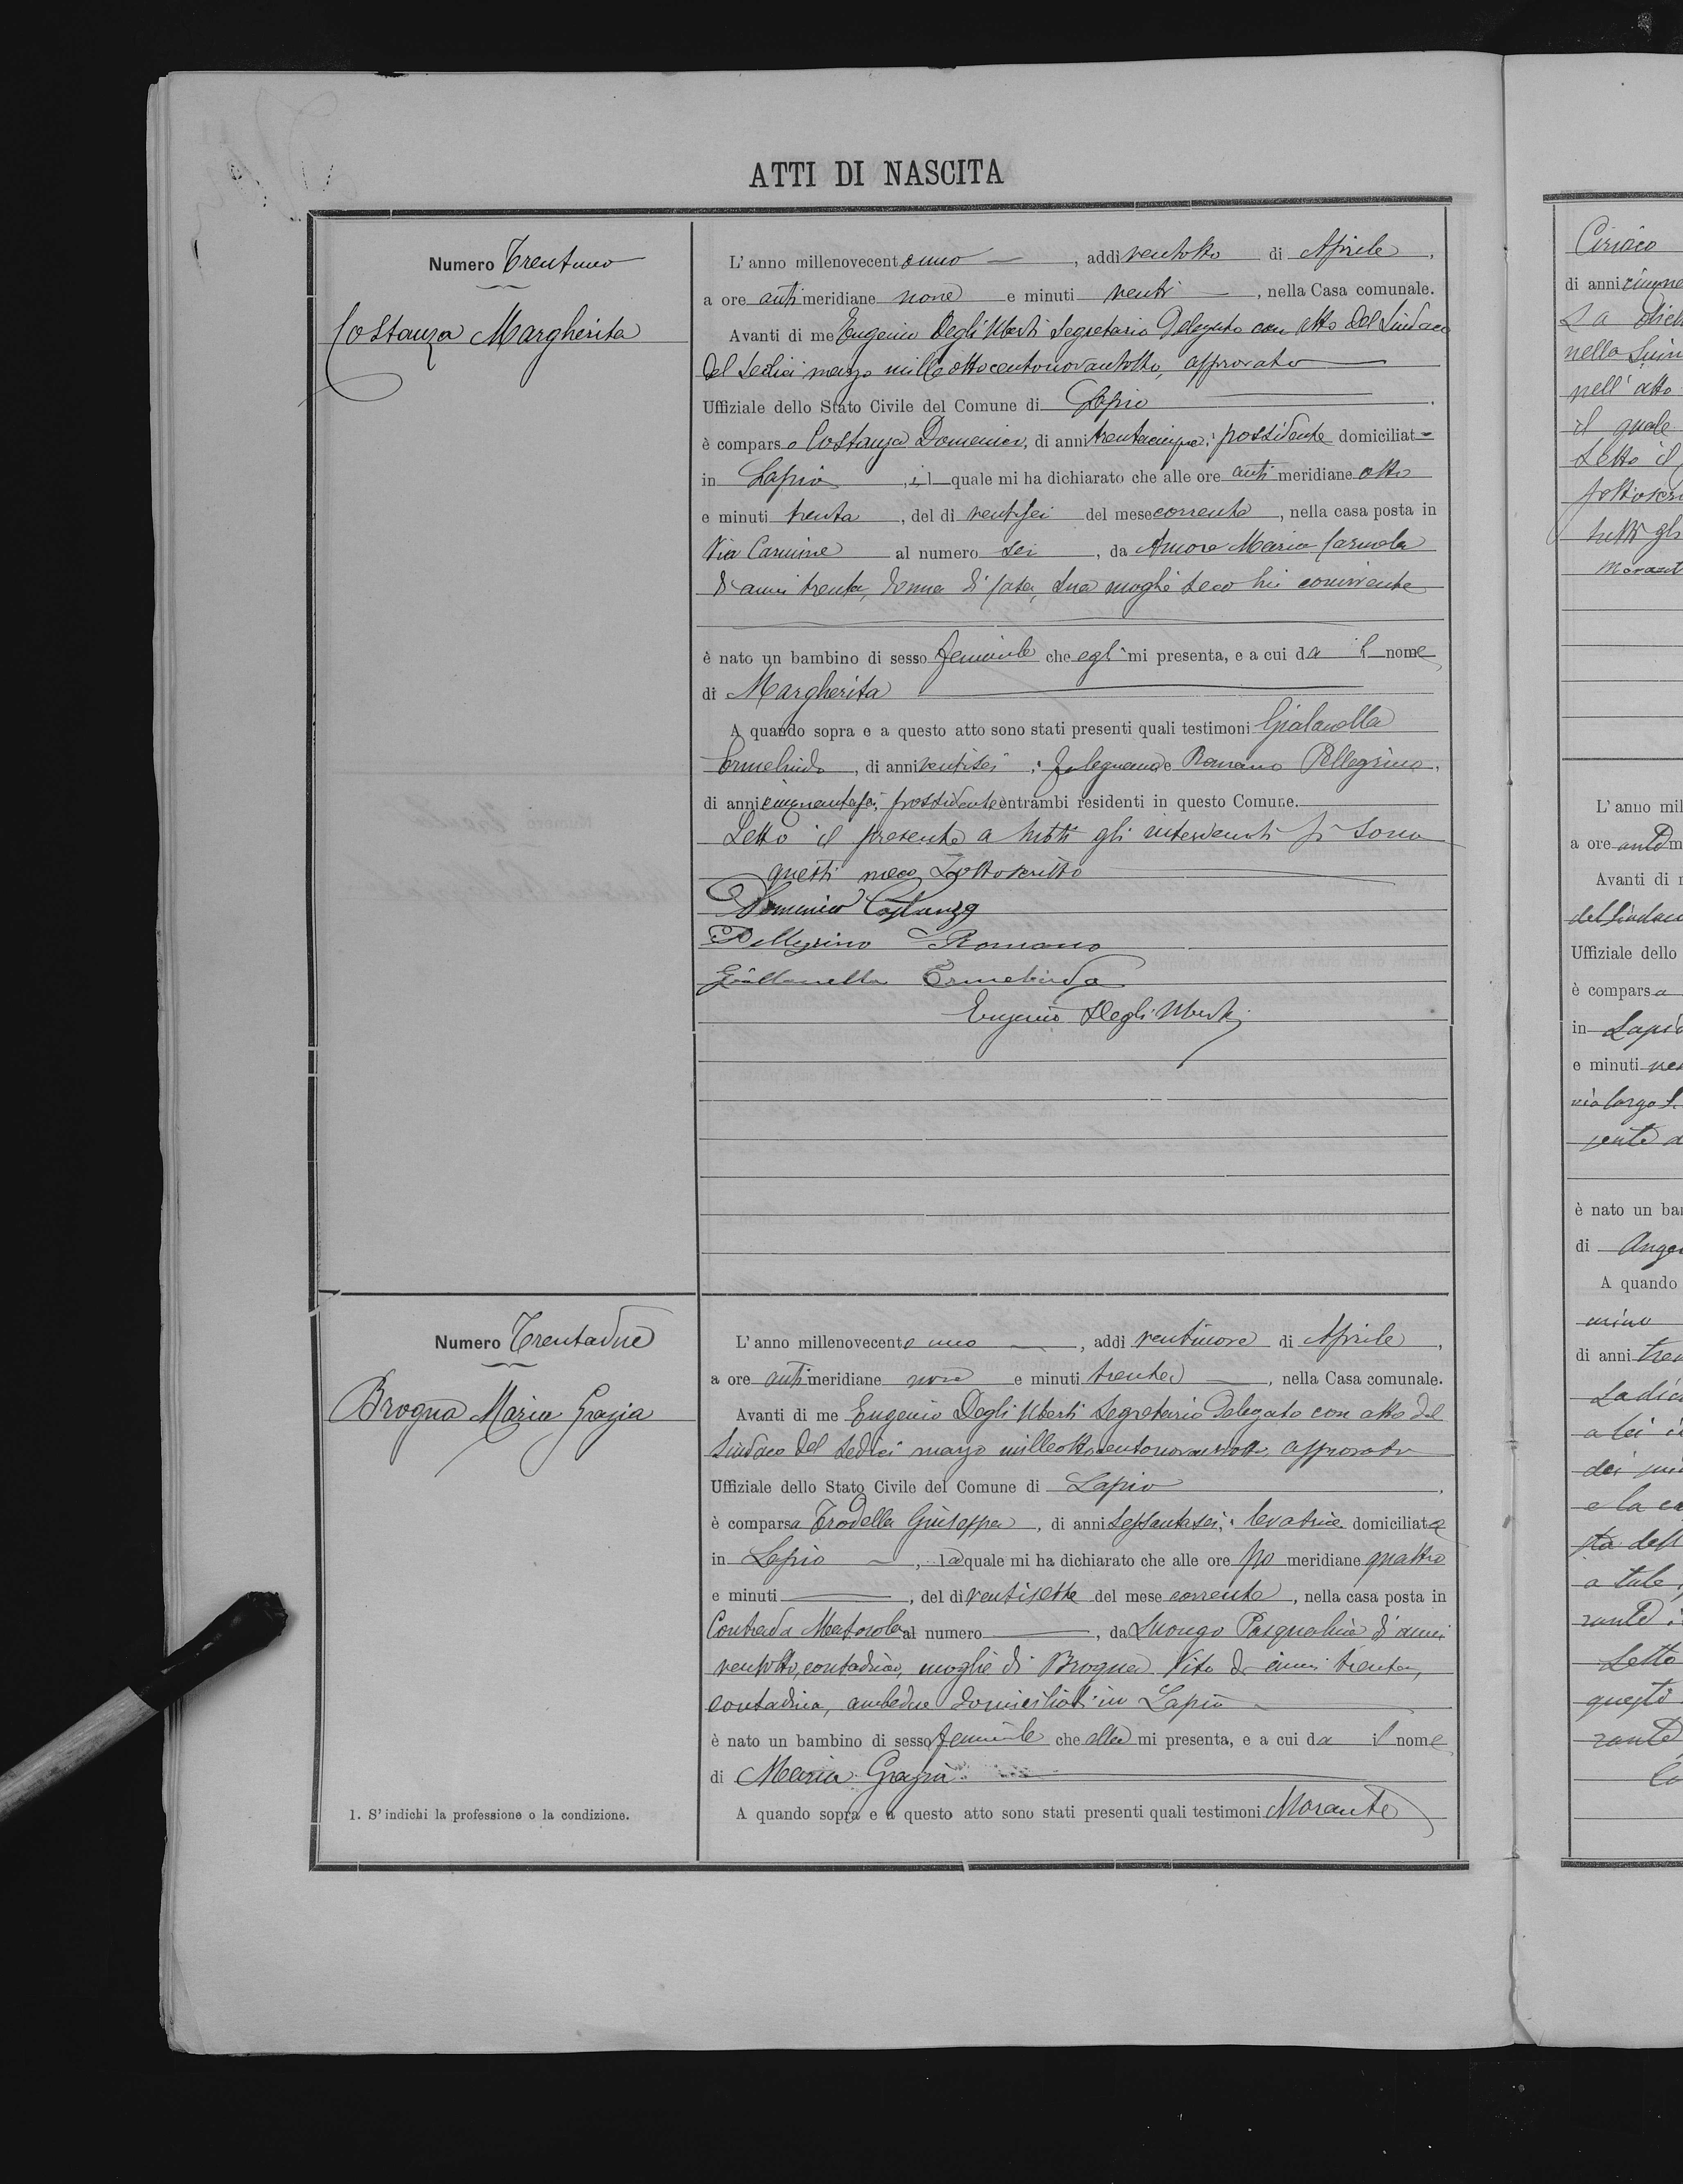 ATTI DI NASCITA
Numero Trentuno
Costanza Margherita
L'anno millenovecentouno, addi ventotto di Aprile,
a ore antimeridiane nove e minuti venti, nella Casa comunale.
Avanti di me Eugenio Degli Uberti Segretario Delegato con atto del Sindaco
del sedici marzo milleottocentonovantotto, approvato
Uffiziale dello Stato Civile del Comune di Lapio.
è comparso Costanza Domenico, di anni trentacinque, possidente domiciliat
in Lapio, il quale mi ha dichiarato che alle ore antimeridiane otto
e minuti trenta, del di ventisei del mese corrente, nella casa posta in
Via Carmine al numero sei, da Amore Maria Carmela
d'anni trenta, donna di casa, sua moglie seco lui convivente
è nato un bambino di sesso feminile che egli mi presenta, e a cui da il nome
di Margherita
A quando sopra e a questo atto sono stati presenti quali testimoni Gialanella
Ermelindo, di anni ventisei, falegname e Romano Pellegrino,
di anni cinquantasei, possidente entrambi residenti in questo Comune.
Letto il presente a tutti gli intervenuti si sono
questi meco sottoscritto
Domenico Costanza
Pellegrino Romano
Giallanella Ermelindo
Eugenio Degli Uberti
Numero Trentadue
Brogna Maria Grazia
L'anno millenovecentouno, addi ventinove di Aprile,
a ore antimeridiane nove e minuti trenta, nella Casa comunale.
Avanti di me Eugenio Degli Uberti Segretario Delegato con atto del
Sindaco del sedici marzo milleottocentonovantotto, approvato
Uffiziale dello Stato Civile del Comune di Lapio,
è comparsa Trodella Giuseppa, di anni sessantasei, levatrice domiciliata
in Lapio, la quale mi ha dichiarato che alle ore pomeridiane quattro
e minuti, del di ventisette del mese corrente, nella casa posta in
Contrada al numero, da Luongo Pasqualina d'anni
ventotto, contadina, moglie di Brogna Vito di anni trenta,
contadino, ambedue domiciliati in Lapio
è nato un bambino di sesso feminile che ella mi presenta, e a cui da il nome
di Maria Grazia
A quando sopra e a questo atto sono stati presenti quali testimoni Morante
1. S'indichi la professione o la condizione.
Ciriaco
di anni
La
nella
nell'atto
il quale
Letto il
tutti gli
Morant
L'anno mil
a ore antim
Avanti di
del Sindaco
Uffiziale dello
è comparsa
in Lapio
e minuti
via largo S.
è nato un ba
di Ange
A quando
di anni tren
La dic
a lei
e la
Letto
questo